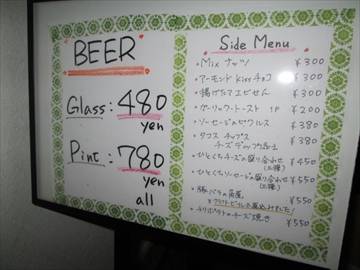 BEER
Glass: 480
yen
Pint: 780
yen
all
Side Menu
・Mix ナッツ ¥300
・アーモンド Kissチョコ ¥300
・揚げたてエビせん ¥300
・ガーリックトースト 1P ¥200
・ソーセージのピクルス ¥380
・タコス チップス
チーズディップ ¥380
・ひとくちチーズの盛り合わせ ¥450
・ひとくちソーセージの盛り合わせ ¥550
・豚バラの角煮 ¥550
クラフトビールで煮込みました!
・チリポテトのチーズ焼き ¥550